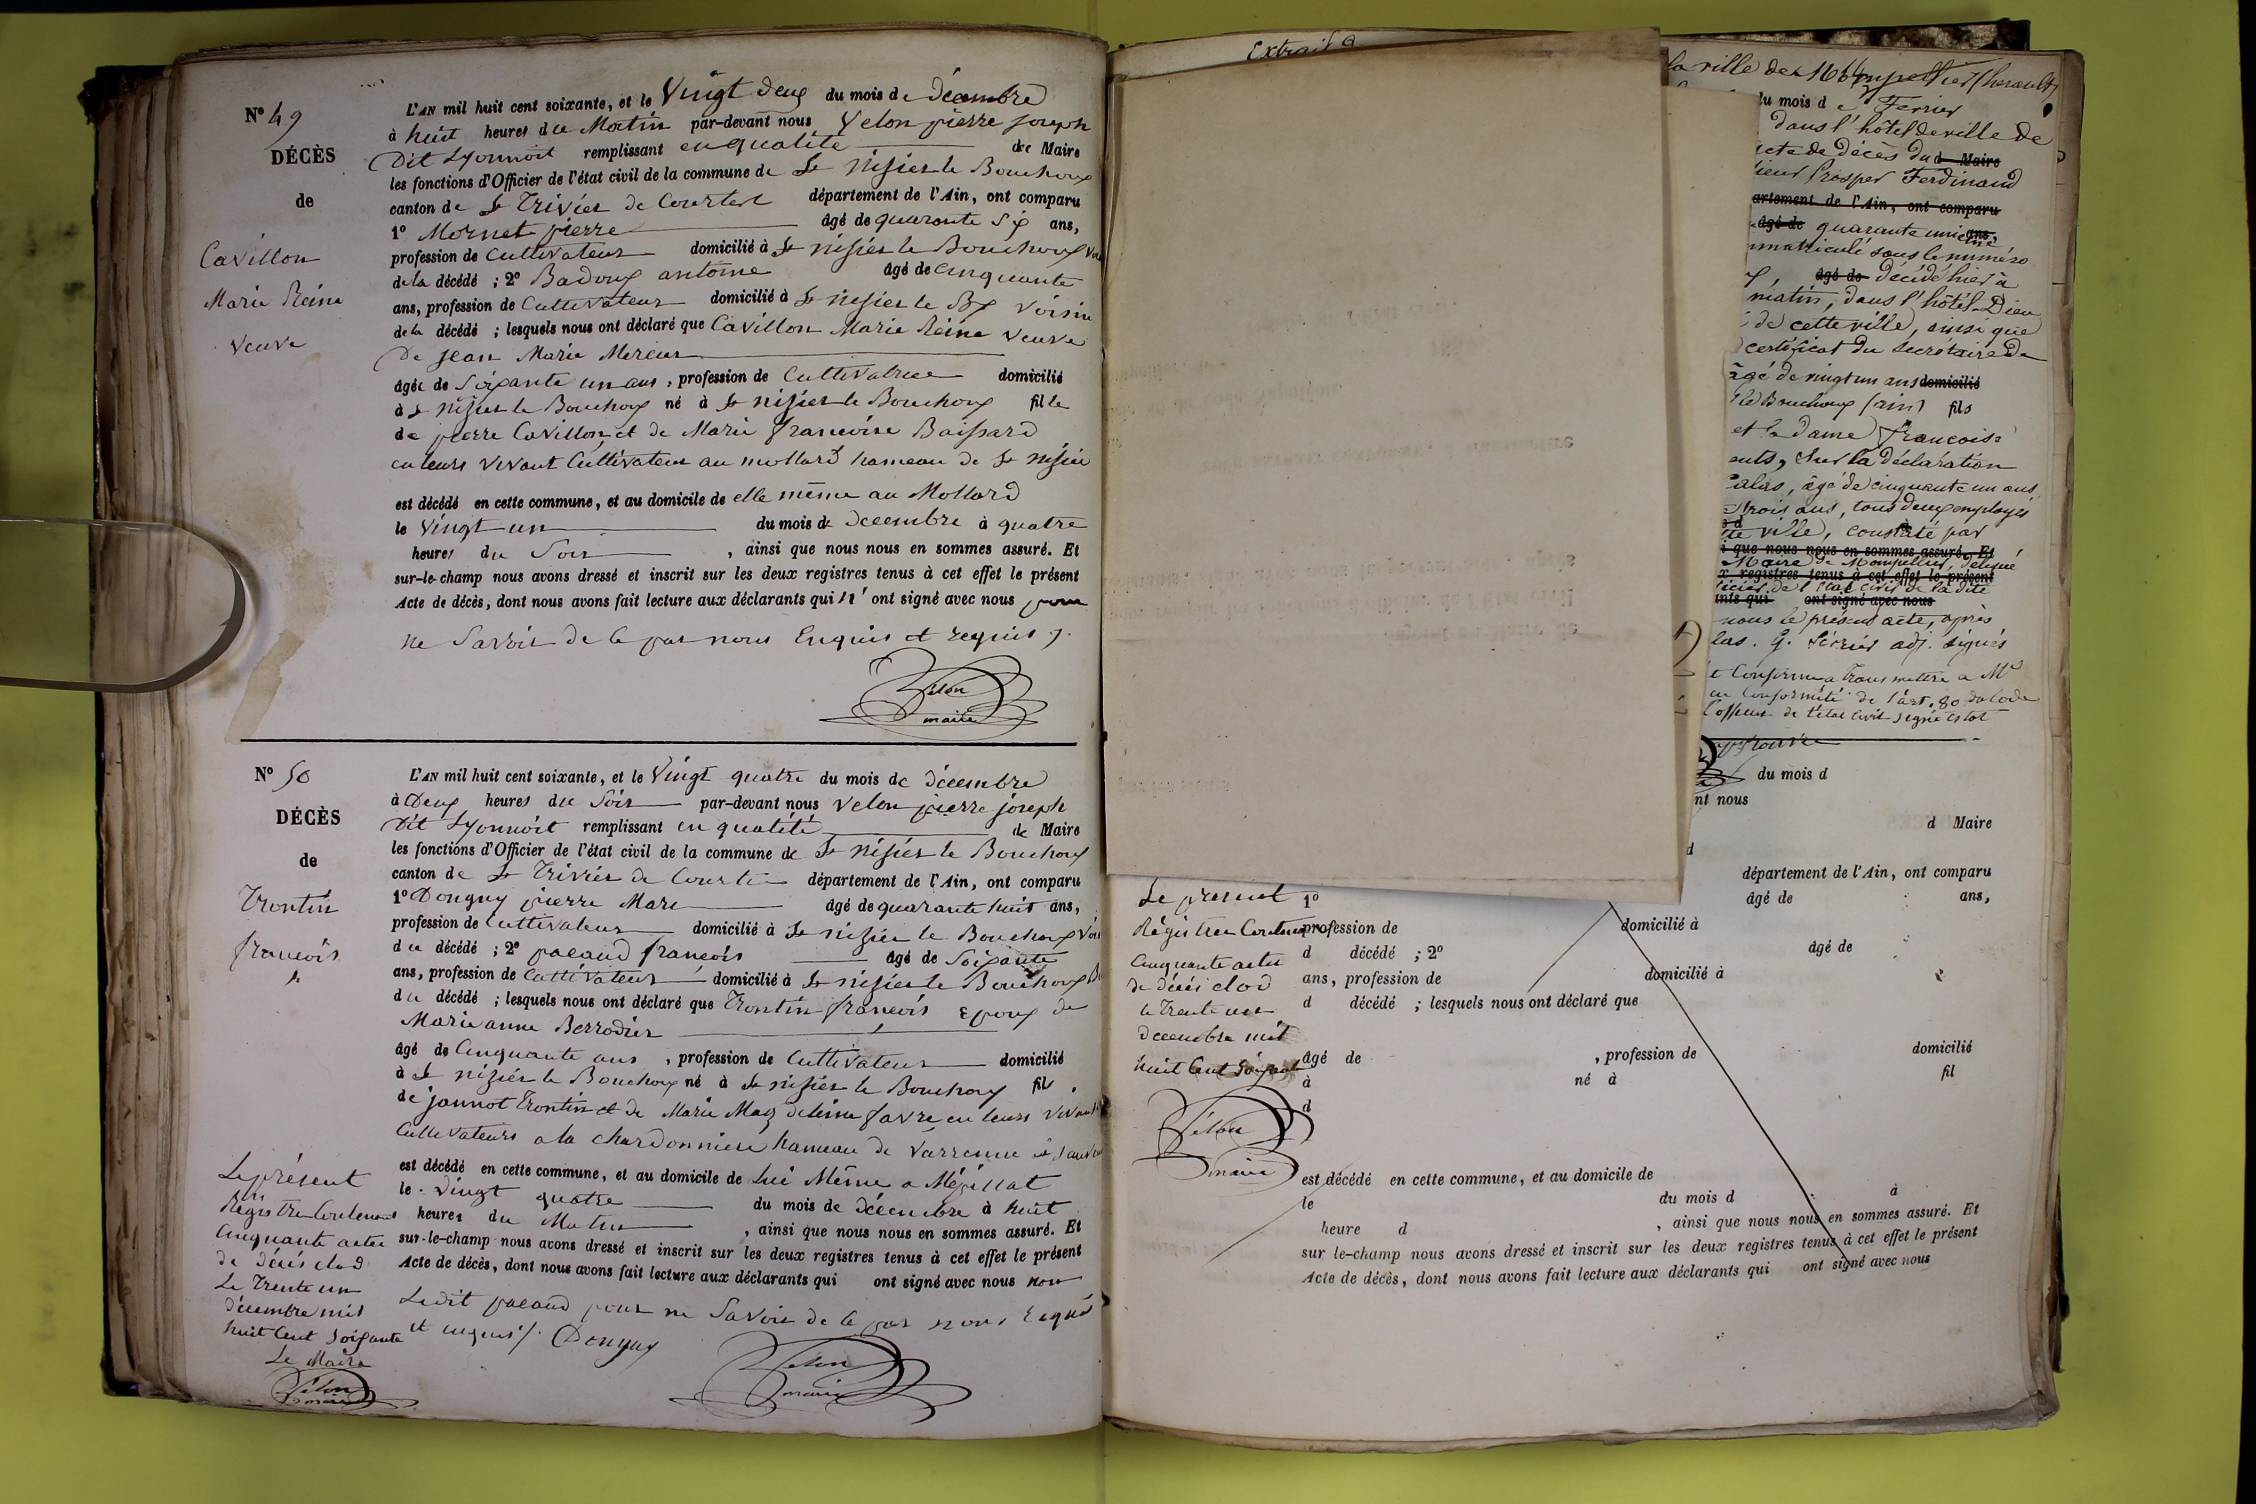 N° 49
DÉCÈS
de
Cavillon
Marie Reine
veuve
L'AN mil huit cent soixante, et le Vingt deux du mois de décembre
à huit heures du Matin par-devant nous Velon pierre joseph
Dit Lyonnoit remplissant en qualité de Maire
les fonctions d'Officier de l'état civil de la commune de St nisier le Bouchoux
canton de St Trivier de Courtes département de l'Ain, ont comparu
1° Mornet pierre âgé de quarante six ans,
profession de Cultivateur domicilié à St nisier le Bouchoux
de la décédé ; 2° Badoux antoine âgé de cinquante
ans, profession de Cultivateur domicilié à St nisier le Bx Voisin
de la décédé ; lesquels nous ont déclaré que Cavillon Marie Reine veuve
De jean Marie Mercier
âgée de Soixante un ans, profession de Cultivatrice domicilié
à St nisier le Bouchoux né à St nisier le Bouchoux fille
de pierre Cavillon et de Marie françoise Baissard
en leurs vivant Cultivateur au mollard hameau de St nisier
est décédé en cette commune, et au domicile de elle même au Mollard
le Vingt un du mois de decembre à quatre
heures du Soir , ainsi que nous nous en sommes assuré. Et
sur-le-champ nous avons dressé et inscrit sur les deux registres tenus à cet effet le présent
Acte de décès, dont nous avons fait lecture aux déclarants qui n' ont signé avec nous pour
ne Savoir de ce par nous Enquis et requis
Velon
maire
N° 50
DÉCÈS
de
Trontin
françois
L'AN mil huit cent soixante, et le Vingt quatre du mois de décembre
à Deux heures du Soir par-devant nous velon pierre joseph
Dit Lyonnoit remplissant en qualité de Maire
les fonctions d'Officier de l'état civil de la commune de St nisier le Bouchoux
canton de St Trivier de Courtes département de l'Ain, ont comparu
1° Donguy pierre Marc âgé de quarante huit ans,
profession de Cultivateur domicilié à St nizier le Bouchoux
du décédé ; 2° pacaud françois âgé de Soixante
ans, profession de Cultivateur domicilié à St nisier le Bouchoux
du décédé ; lesquels nous ont déclaré que Trontin françois Epoux de
Marie anne Berrodier
âgé de Cinquante ans , profession de Cultivateur domicilié
à St nizier le Bouchoux né à St nisier le Bouchoux fils
de jannot Trontin et de Marie Magdeleine favre en leurs vivant
Cultivateurs a la chardonniere hameau de Varrenne
est décédé en cette commune, et au domicile de Lui Même a Mépillat
le Vingt quatre du mois de décembre à huit
heures du Matin , ainsi que nous nous en sommes assuré. Et
sur-le-champ nous avons dressé et inscrit sur les deux registres tenus à cet effet le présent
Acte de décès, dont nous avons fait lecture aux déclarants qui ont signé avec nous non
Ledit pacaud pour ne Savoir de ce par nous Requis
et enquis Donguy
Velon
maire
Le présent
Régistre Contenant
Cinquante actes
de décés clos
Le Trente un
décembre mil
huit Cent Soixante
Le Maire
Velon
maire
Extrait
la ville de Montpellier (herault)
du mois de Fevrier
dans l'hôtel de ville de
acte de décès du d Maire
sieur Prosper Ferdinand
artement de l'Ain, ont comparu
âgé de quarante unième ans,
immatriculé sous le numéro
âgé de décédé hier à
matin, dans l'hôtel-Dieu
de cette ville, ainsi que
certificat du secrétaire de
âgé de vingt un ans domicilié
le Bouchoux (ain) fils
et la dame françoise
ents, Sur la déclaration
alas, âgé de cinquante un ans
trois ans, tous deux employés
te ville, constaté par
i que nous nous en sommes assuré. Et
Maire de Montpellier, délégué
x registres tenus à cet effet le présent
icier de l'état civil de la dite
ants qui ont signé avec nous
nous le présent acte, après
las. G. adj. signés
t Conforme a Transmettre a Mr
en Conformité de l'art. 80 du Code
l'officier de l'état Civil signé
du mois d
nt nous
d Maire
d
département de l'Ain, ont comparu
âgé de ans,
Le présent
Régistre Contenant
Cinquante actes
de décés clos
le Trente un
decembre mil
huit Cent Soixante
Velon
maire
1°
profession de domicilié à
d décédé ; 2° âgé de
ans, profession de domicilié à
d décédé ; lesquels nous ont déclaré que
âgé de , profession de domicilié
à né à fil
d
est décédé en cette commune, et au domicile de
le du mois d à
heure d , ainsi que nous nous en sommes assuré. Et
sur le-champ nous avons dressé et inscrit sur les deux registres tenus à cet effet le présent
Acte de décès, dont nous avons fait lecture aux déclarants qui ont signé avec nous